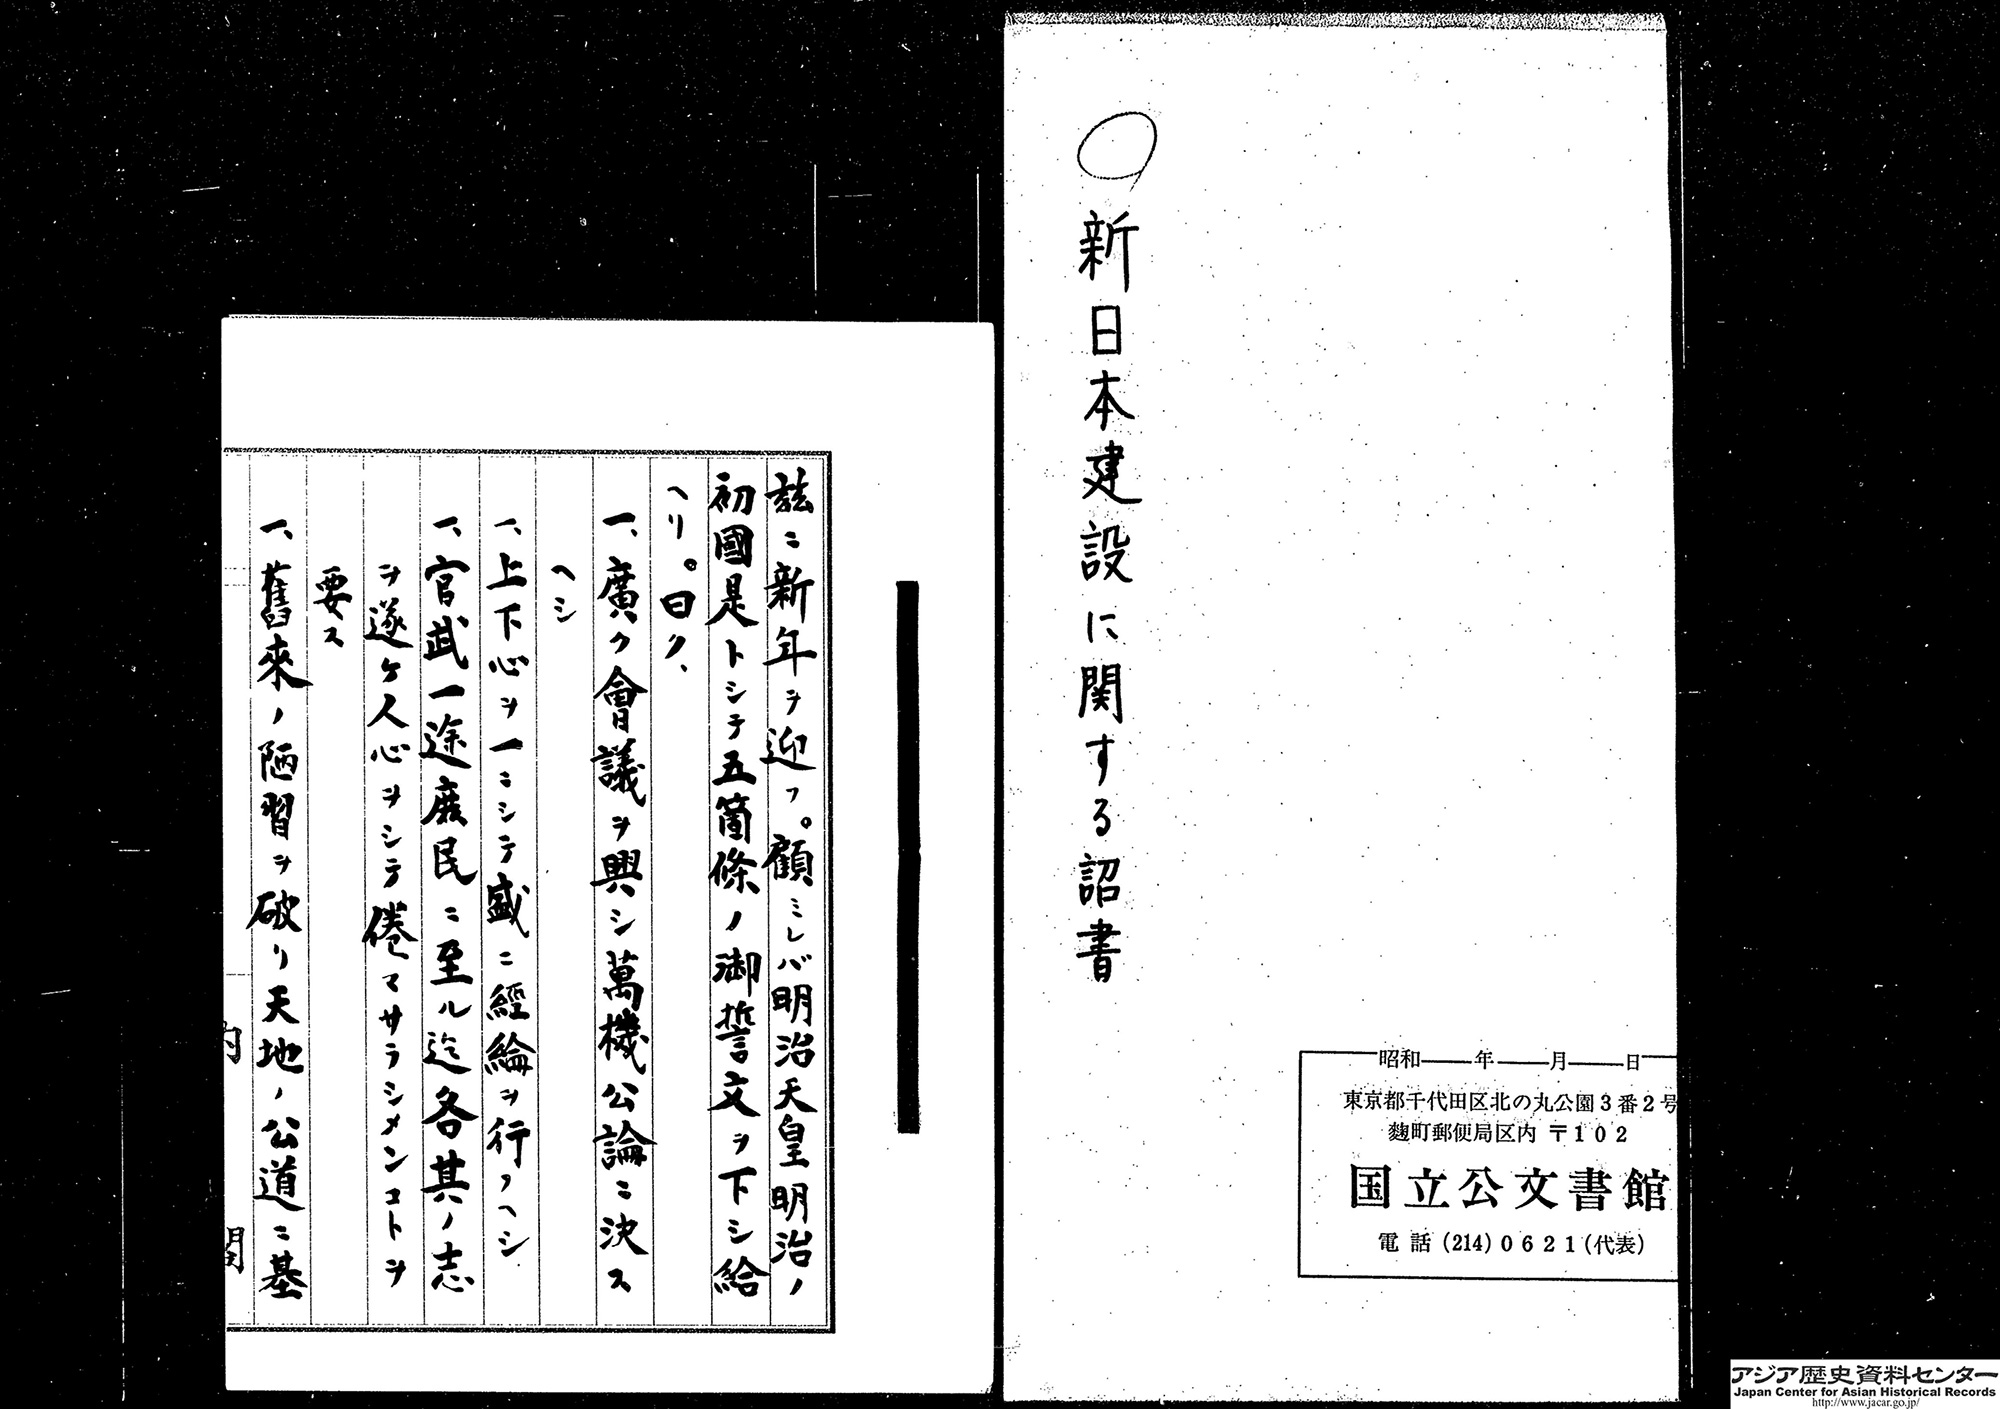 新日本建設に関する詔書
昭和 年 月 日
東京都千代田区北の丸公園3番2号
麹町郵便局区内 〒102
国立公文書館
電話(214)0621(代表)
茲ニ新年ヲ迎フ。顧ミレバ明治天皇明治ノ
初國是トシテ五箇條ノ御誓文ヲ下シ給
ヘリ。曰ク、
一、廣ク會議ヲ興シ萬機公論ニ決ス
ヘシ
一、上下心ヲ一ニシテ盛ニ經綸ヲ行フヘシ
一、官武一途庶民ニ至ル迄各其ノ志
ヲ遂ケ人心ヲシテ倦マサラシメンコトヲ
要ス
一、舊來ノ陋習ヲ破リ天地ノ公道ニ基
内閣
アジア歴史資料センター
Japan Center for Asian Historical Records
http://www.jacar.go.jp/